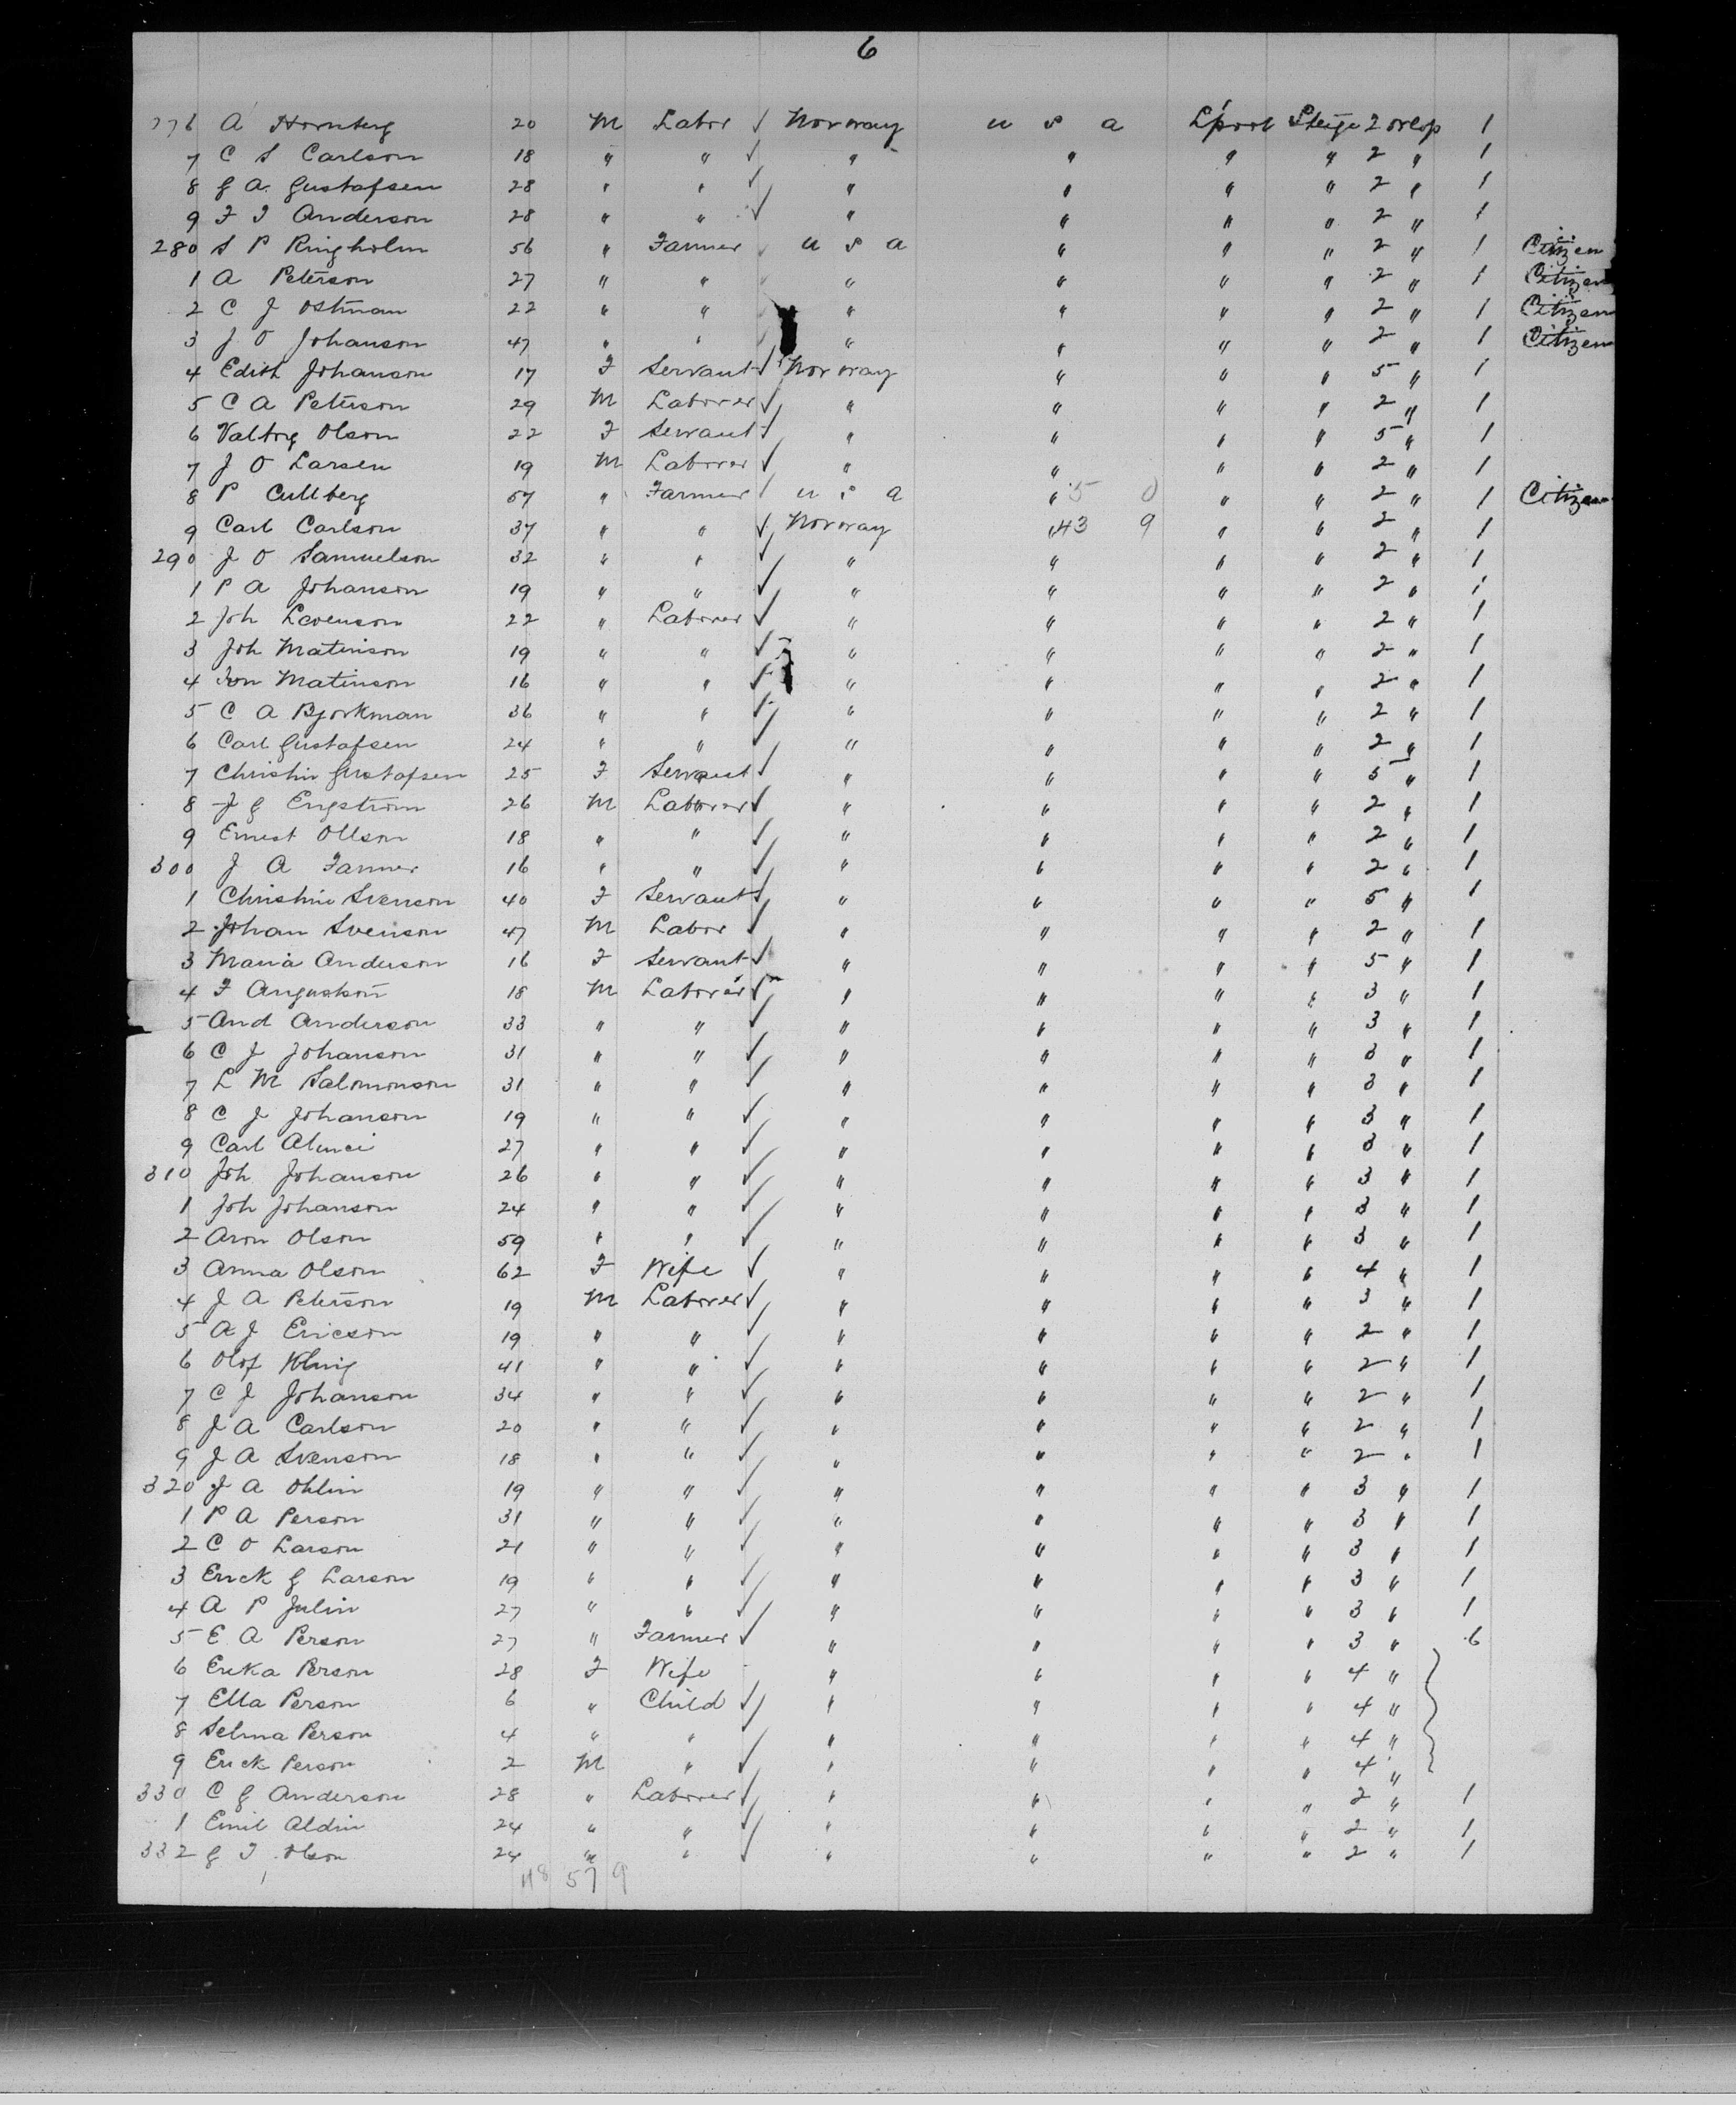 6
276 A Hornberg 20 M Labor ✓ Norway U S A L'pool Steige 2 orlop 1
7 C S Carlson 18 " " ✓ " " " " 2 " 1
8 G A Gustafsen 28 " " ✓ " " " " 2 " 1
9 F I Anderson 28 " " ✓ " " " " 2 " 1
280 S P Ringholm 56 " Farmer U S A " " " 2 " 1 Citizen
1 A Peterson 27 " " " " " " 2 " 1 Citizen
2 C J Ostman 22 " " " " " " 2 " 1 Citizen
3 J O Johanson 47 " " " " " " 2 " 1 Citizen
4 Edith Johanson 17 F Servant ✓ Norway " " " 5 " 1
5 C A Peterson 29 M Laborer ✓ " " " " 2 " 1
6 Valborg Olson 22 F Servant ✓ " " " " 5 " 1
7 J O Larsen 19 M Laborer ✓ " " " " 2 " 1
8 P Cullberg 57 " Farmer U S A " 5 0 " " 2 " 1 Citizen
9 Carl Carlson 37 " " ✓ Norway " 43 9 " " 2 " 1
290 J O Samuelson 32 " " ✓ " " " " 2 " 1
1 P A Johanson 19 " " ✓ " " " " 2 " 1
2 Joh 22 " Laborer ✓ " " " " 2 " 1
3 Joh Matinson 19 " " ✓ " " " " 2 " 1
4 Matinson 16 " " ✓ " " " " 2 " 1
5 C A Bjorkman 36 " " ✓ " " " " 2 " 1
6 Carl Gustafsen 24 " " ✓ " " " " 2 " 1
7 Christin Gustafsen 25 F Servant ✓ " " " " 5 " 1
8 J G Engstrom 26 M Laborer ✓ " " " " 2 " 1
9 Ernest Ollson 18 " " ✓ " " " " 2 " 1
300 J A Farmer 16 " " ✓ " " " " 2 " 1
1 Christine Svenson 40 F Servant ✓ " " " " 5 " 1
2 Johan Svenson 47 M Labor ✓ " " " " 2 " 1
3 Maria Anderson 16 F Servant ✓ " " " " 5 " 1
4 F Angustson 18 M Laborer ✓ " " " " 3 " 1
5 And Anderson 33 " " ✓ " " " " 3 " 1
6 C J Johanson 31 " " ✓ " " " " 3 " 1
7 L M Salomonson 31 " " ✓ " " " " 3 " 1
8 C J Johanson 19 " " ✓ " " " " 3 " 1
9 Carl 27 " " ✓ " " " " 3 " 1
310 Joh Johanson 26 " " ✓ " " " " 3 " 1
1 Joh Johanson 24 " " ✓ " " " " 3 " 1
2 Aron Olson 59 " " ✓ " " " " 3 " 1
3 Anna Olson 62 F Wife ✓ " " " " 4 " 1
4 J A Peterson 19 M Laborer ✓ " " " " 3 " 1
5 A J Ericson 19 " " ✓ " " " " 2 " 1
6 Olof 41 " " ✓ " " " " 2 " 1
7 C J Johanson 34 " " ✓ " " " " 2 " 1
8 J A Carlson 20 " " ✓ " " " " 2 " 1
9 J A Svenson 18 " " ✓ " " " " 2 " 1
320 J A Ohlin 19 " " ✓ " " " " 3 " 1
1 P A Person 31 " " ✓ " " " " 3 " 1
2 C O Larson 21 " " ✓ " " " " 3 " 1
3 Erick G Larson 19 " " ✓ " " " " 3 " 1
4 A P Julin 27 " " ✓ " " " " 3 " 1
5 E A Person 27 " Farmer ✓ " " " " 3 " 6
6 Erika Person 28 F Wife " " " " 4 "
7 Ella Person 6 " Child ✓ " " " " 4 "
8 Selma Person 4 " " ✓ " " " " 4 "
9 Erick Person 2 M " ✓ " " " " 4 "
330 C G Anderson 28 " Laborer ✓ " " " " 2 " 1
1 Emil Aldin 24 " " ✓ " " " " 2 " 1
332 G I Olson 24 " " ✓ " " " " 2 " 1
118 57 9